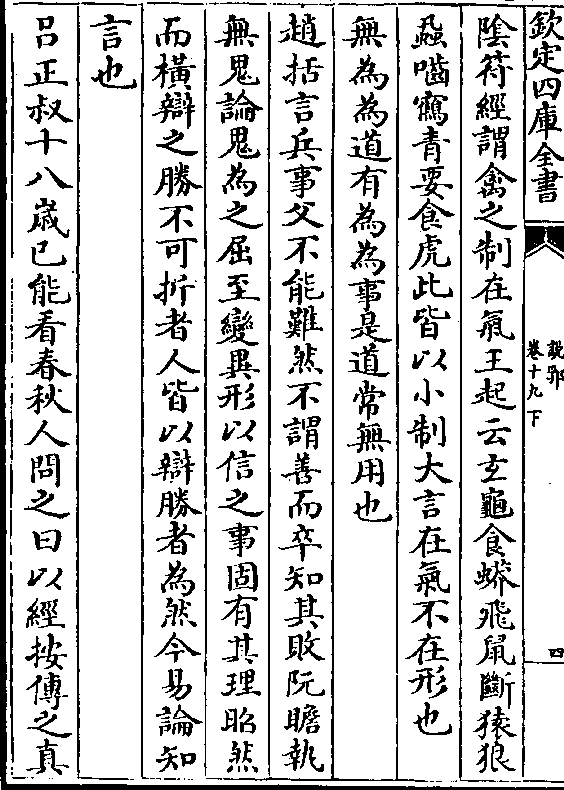 欽定四庫全書
說郛
卷十九下
四
陰符經謂禽之制在氣王起云玄龜食蟒飛鼠斷猿狼
蝨嚙鶴青要食虎此皆以小制大言在氣不在形也
無為為道有為為事是道常無用也
趙括言兵事父不能難然不謂善而卒知其敗阮瞻執
無鬼論鬼為之屈至變異形以信之事固有其理昭然
而橫辯之勝不可折者人皆以辯勝者為然今易論知
言也
呂正叔十八歲已能看春秋人問之曰以經按傳之真